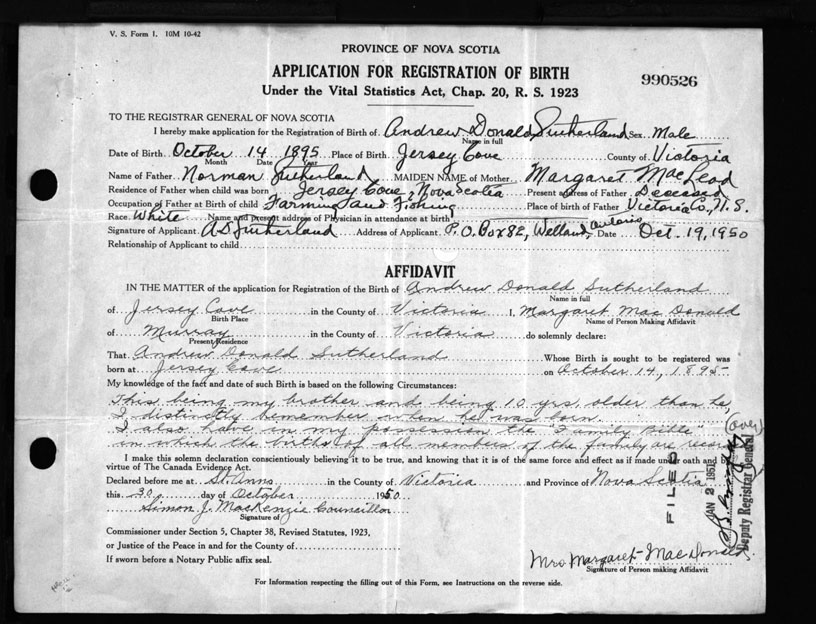 V. S. Form 1. 10M 10-42
PROVINCE OF NOVA SCOTIA
APPLICATION FOR REGISTRATION OF BIRTH
990526
Under the Vital Statistics Act, Chap. 20, R. S. 1923
TO THE REGISTRAR GENERAL OF NOVA SCOTIA
I hereby make application for the Registration of Birth of Andrew Donald Sutherland Sex Male
Name in full
Date of Birth October 14 1895 Place of Birth Jersey Cove County of Victoria
Month Date Year
Name of Father Norman Sutherland MAIDEN NAME of Mother Margaret MacLeod
Residence of Father when child was born Jersey Cove, Nova Scotia Present address of Father Deceased
Occupation of Father at Birth of child Farming and Fishing Place of birth of Father Victoria Co., N.S.
Race White Name and present address of Physician in attendance at birth
Signature of Applicant A D Sutherland Address of Applicant P.O. Box 82, Welland, Ontario Date Oct. 19, 1950
Relationship of Applicant to child
AFFIDAVIT
IN THE MATTER of the application for Registration of the Birth of Andrew Donald Sutherland
Name in full
of Jersey Cove in the County of Victoria I, Margaret Mac Donald
Birth Place Name of Person Making Affidavit
of Murray in the County of Victoria do solemnly declare:
Present Residence
That Andrew Donald Sutherland Whose Birth is sought to be registered was
born at Jersey Cove on October 14, 1895
My knowledge of the fact and date of such Birth is based on the following Circumstances:
This being my brother and being 10 yrs older than he,
I distinctly remember when he was born.
I also have in my possession the Family Bible
in which the births of all members of the family are record
(over)
I make this solemn declaration conscientiously believing it to be true, and knowing that it is of the same force and effect as if made under oath and by
virtue of The Canada Evidence Act.
Declared before me at St. Anns in the County of Victoria and Province of Nova Scotia
this 30 day of October 1950
Simon J. MacKenzie Councillor
Signature of
Commissioner under Section 5, Chapter 38, Revised Statutes, 1923,
or Justice of the Peace in and for the County of
If sworn before a Notary Public affix seal.
Mrs Margaret MacDonald
Signature of Person making Affidavit
FILED
JAN 2 1951
Deputy Registrar General
For Information respecting the filling out of this Form, see Instructions on the reverse side.